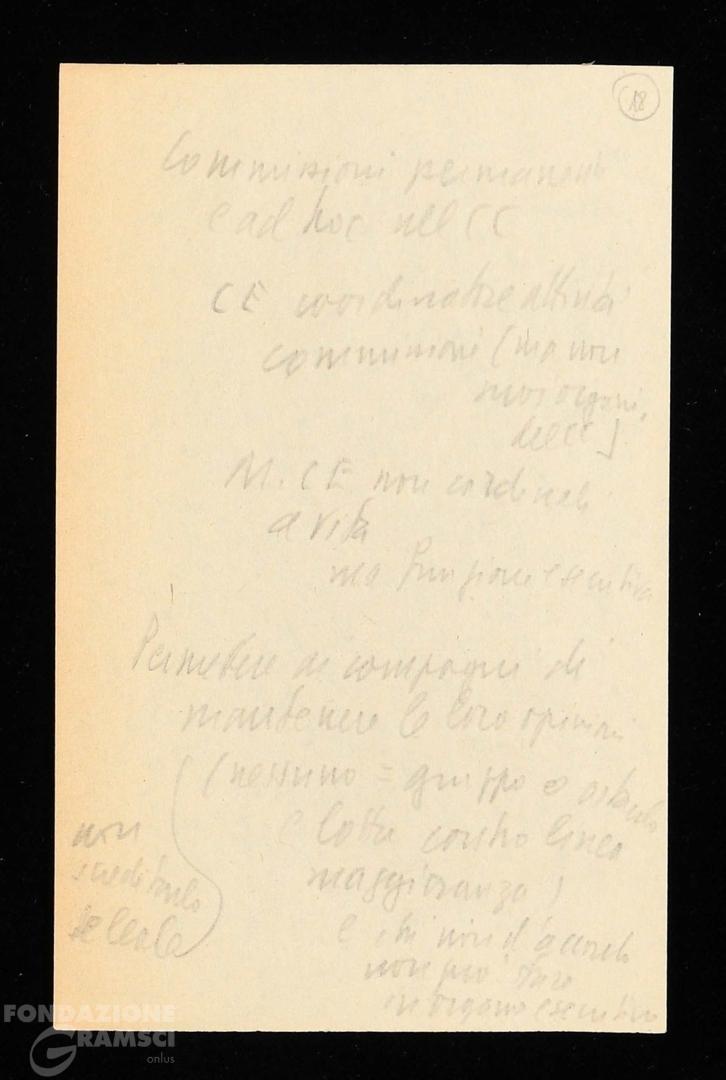 18
Commissioni permanenti
e ad hoc nel CC
CE coordinatore attività
commissioni (ma non
organi
del CC)
M. CE non cardinali
a vita
ma funzione esecutiva
Permettere ai compagni di
mantenere le loro opinioni
(nessuno = gruppo o ostacolo
e lotta contro linea
maggioranza)
e chi non d'accordo
non può stare
in organo esecutivo
non
screditarlo
se leale
FONDAZIONE
GRAMSCI
onlus